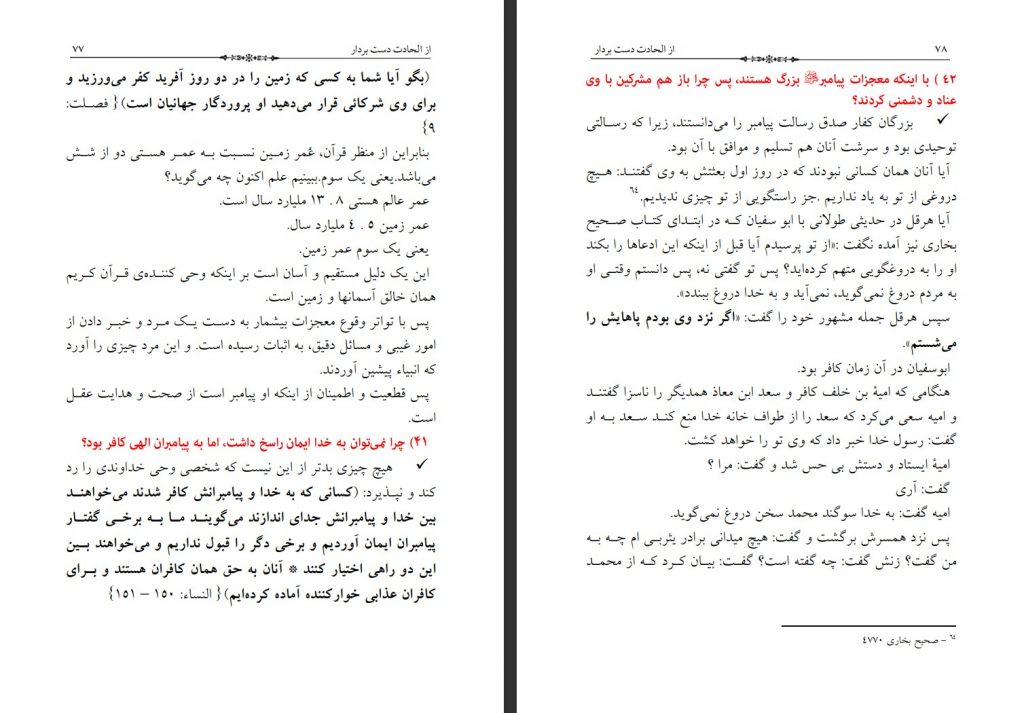 از الحادت دست بردار ۷۷
(بگو آیا شما به کسی که زمین را در دو روز آفرید کفر می‌ورزید و
برای وی شرکائی قرار می‌دهید او پروردگار جهانیان است){ فصلت:
۹}
بنابراین از منظر قرآن، عُمر زمـین نسـبت بـه عمـر هسـتی دو از شـش
می‌باشد.یعنی یک سوم.ببینیم علم اکنون چه می‌گوید؟
عمر عالم هستی ۸ . ۱۳ ملیارد سال است.
عمر زمین ۵ . ٤ ملیارد سال.
یعنی یک سوم عمر زمین.
این یک دلیل مستقیم و آسان است بر اینکه وحی کننـده‌ی قـرآن کـریم
همان خالق آسمانها و زمین است.
پس با تواتر وقوع معجزات بیشمار به دست یـک مـرد و خبـر دادن از
امور غیبی و مسائل دقیق، به اثبات رسیده است. و این مرد چیزی را آورد
که انبیاء پیشین آوردند.
پس قطعیت و اطمینان از اینکه او پیامبر است از صحت و هدایت عقـل
است.
۴۱) چرا نمی‌توان به خدا ایمان راسخ داشت، اما به پیامبران الهی کافر بود؟
✓ هیچ چیزی بدتر از این نیست که شخصی وحی خداوندی را رد
کند و نپـذیرد: (کسانی که به خدا و پیامبرانش کافر شدند می‌خواهنـد
بین خدا و پیامبرانش جدای اندازند می‌گوینـد مـا بـه برخـی گفتـار
پیامبران ایمان آوردیم و برخی دگر را قبول نداریم و می‌خواهند بـین
این دو راهی اختیار کنند * آنان به حق همان کافران هستند و بـرای
کافران عذابی خوارکننده آماده کرده‌ایم){ النساء: ۱۵۰ – ۱۵۱}
۷۸ از الحادت دست بردار
۴۲ ) با اینکه معجزات پیامبرﷺ بزرگ هستند، پس چرا باز هم مشرکین با وی
عناد و دشمنی کردند؟
✓ بزرگان کفار صدق رسالت پیامبر را می‌دانستند، زیرا که رسـالتی
توحیدی بود و سرشت آنان هم تسلیم و موافق با آن بود.
آیا آنان همان کسانی نبودند که در روز اول بعثتش به وی گفتنـد: هـیچ
دروغی از تو به یاد نداریم .جز راستگویی از تو چیزی ندیدیم.٦٤
آیا هرقل در حدیثی طولانی با ابو سفیان کـه در ابتـدای کتـاب صـحیح
بخاری نیز آمده نگفت :«از تو پرسیدم آیا قبل از اینکه این ادعاها را بکند
او را به دروغگویی متهم کرده‌اید؟ پس تو گفتی نه، پس دانستم وقتـی او
به مردم دروغ نمی‌گوید، نمی‌آید و به خدا دروغ ببندد».
سپس هرقل جمله مشهور خود را گفت: «اگر نزد وی بودم پاهایش را
می‌شستم».
ابوسفیان در آن زمان کافر بود.
هنگامی که امیۀ بن خلف کافر و سعد ابن معاذ همدیگر را ناسزا گفتنـد
و امیه سعی می‌کرد که سعد را از طواف خانه خدا منع کنـد سـعد بـه او
گفت: رسول خدا خبر داد که وی تو را خواهد کشت.
امیۀ ایستاد و دستش بی حس شد و گفت: مرا ؟
گفت: آری
امیه گفت: به خدا سوگند محمد سخن دروغ نمی‌گوید.
پس نزد همسرش برگشت و گفت: هیچ میدانی برادر یثربـی ام چـه بـه
من گفت؟ زنش گفت: چه گفته است؟ گفـت: بیـان کـرد کـه از محمـد
٦٤ - صحیح بخاری ٤٧٧٠